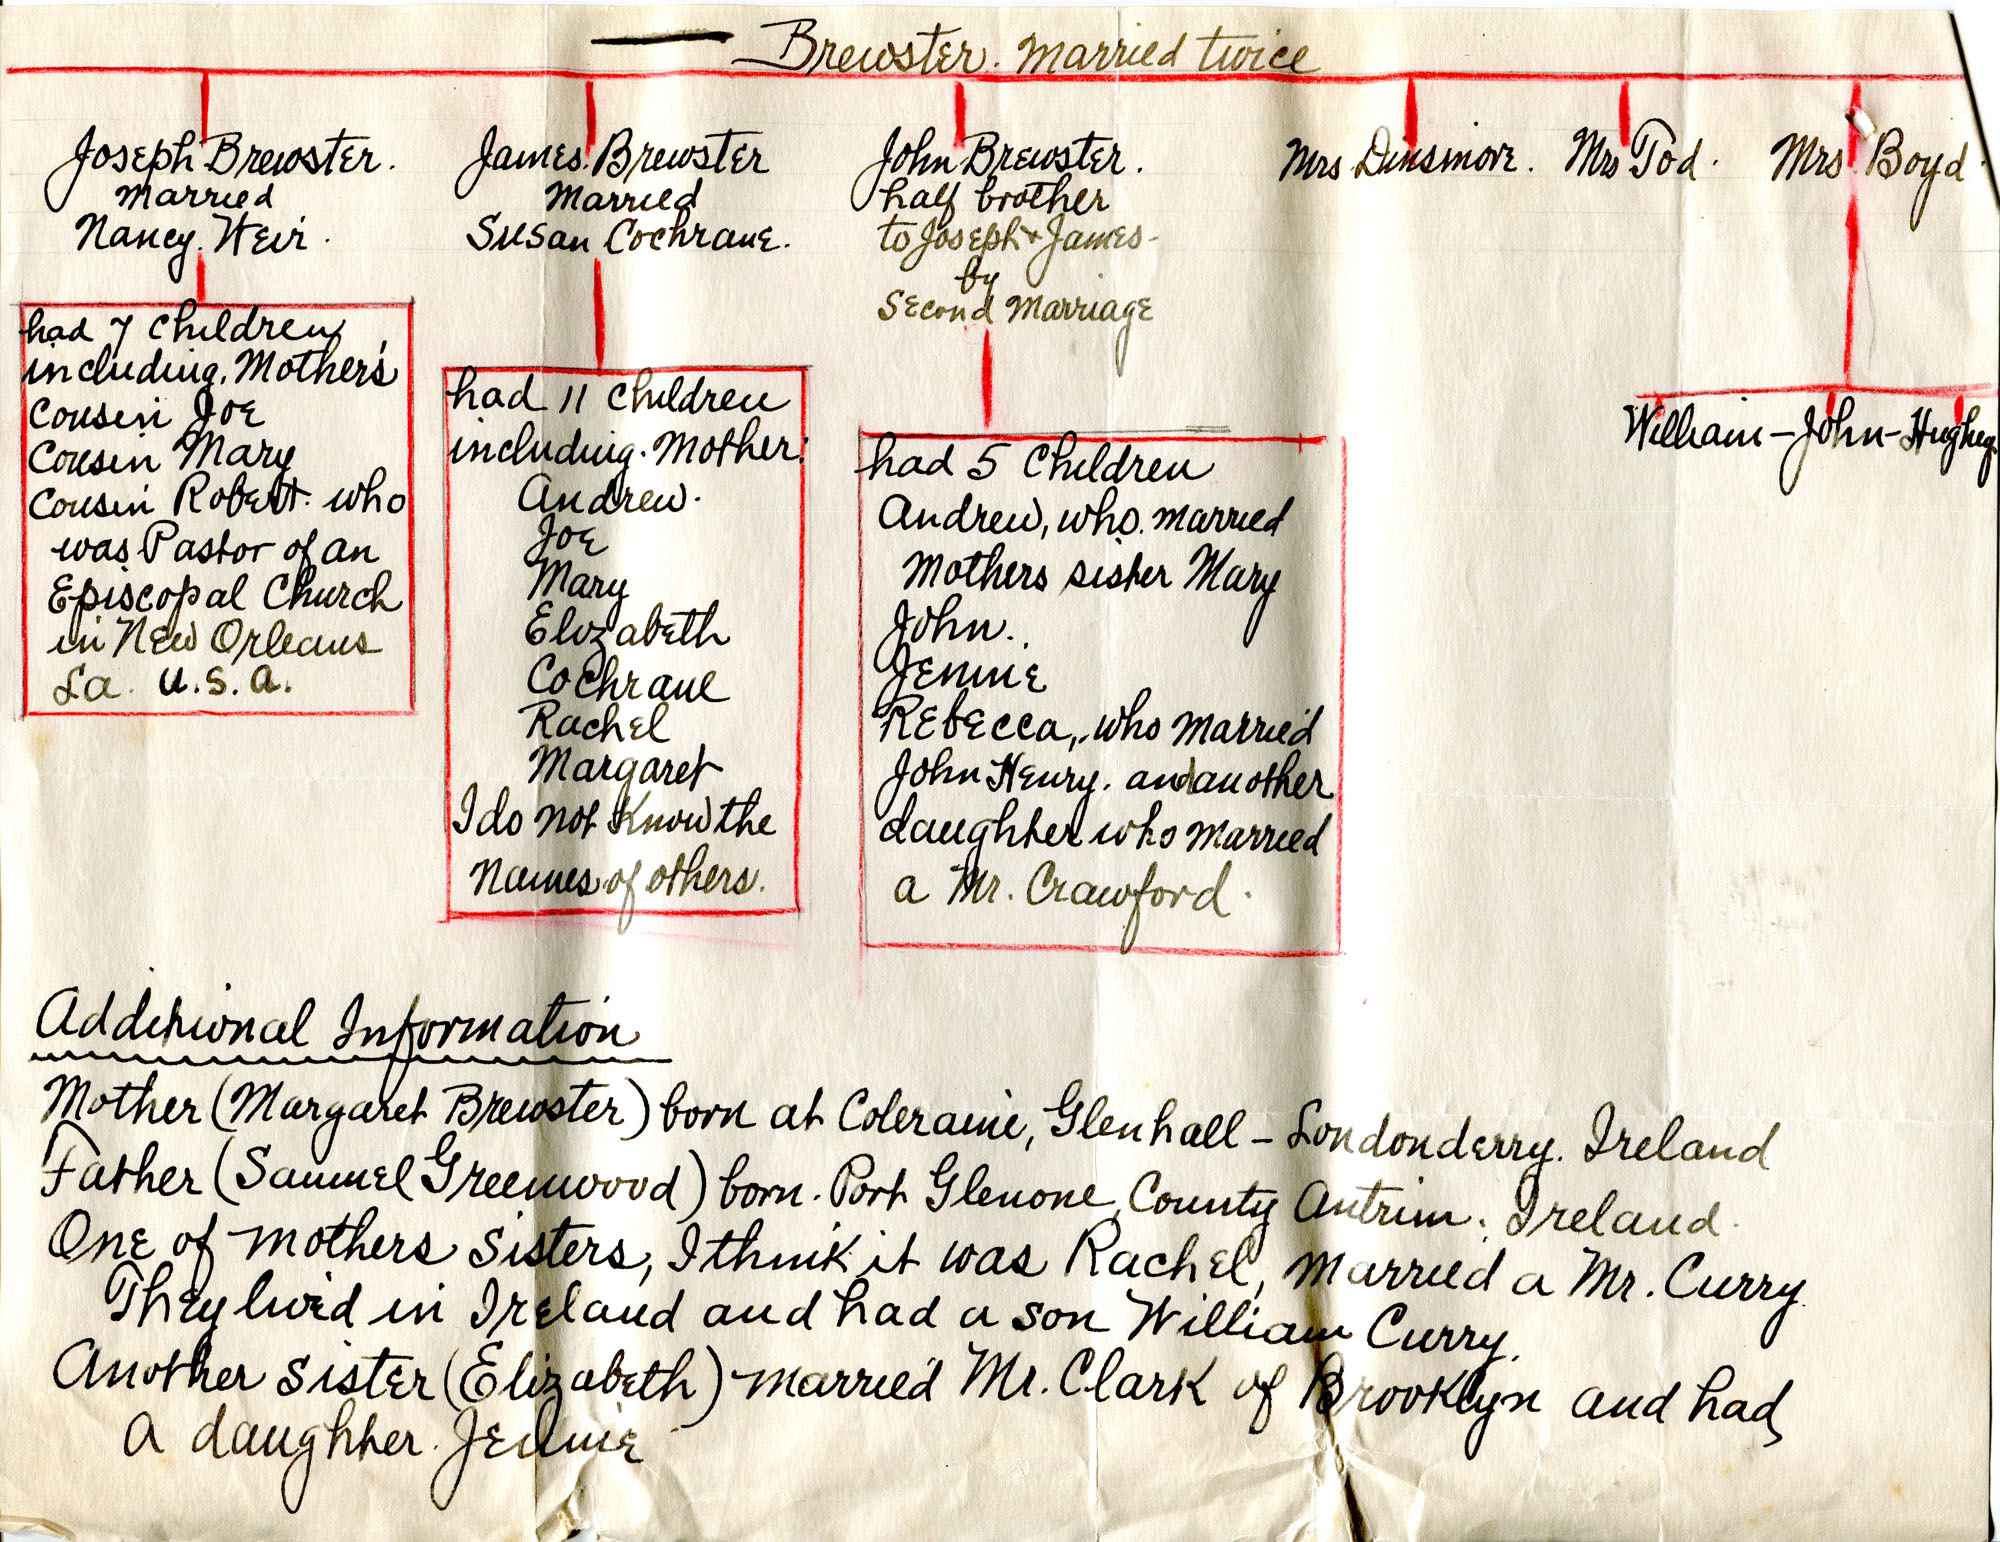 — Brewster. Married twice
Joseph Brewster.
Married
Nancy. Weir.
had 7 children,
including. Mother's
Cousin Joe
Cousin Mary
Cousin Robert. who
was Pastor of an
Episcopal Church
in New Orleans
La. U.S.A.
James. Brewster
Married
Susan Cochrane.
had 11 children
including. Mother:
Andrew.
Joe
Mary
Elizabeth
Cochrane
Rachel
Margaret
I do not Know the
Names of others.
John Brewster.
half brother
to Joseph + James-
by
Second Marriage
had 5 children
Andrew, who. married
Mothers sister Mary
John.
Jennie
Rebecca, who married
John Henry. and another
daughter who married
a Mr. Crawford.
Mrs Dinsmore. Mrs Tod. Mrs Boyd.
William - John - Hughey.
Additional Information
Mother (Margaret Brewster) born at Coleraine, Glenhall - Londonderry. Ireland
Father (Samuel Greenwood) born. Port Glenone, County Antrim. Ireland.
One of Mothers Sisters, I think it was Rachel, married a Mr. Curry.
They lived in Ireland and had a son William Curry.
Another sister (Elizabeth) married Mr. Clark of Brooklyn and had,
a daughter. Jennie